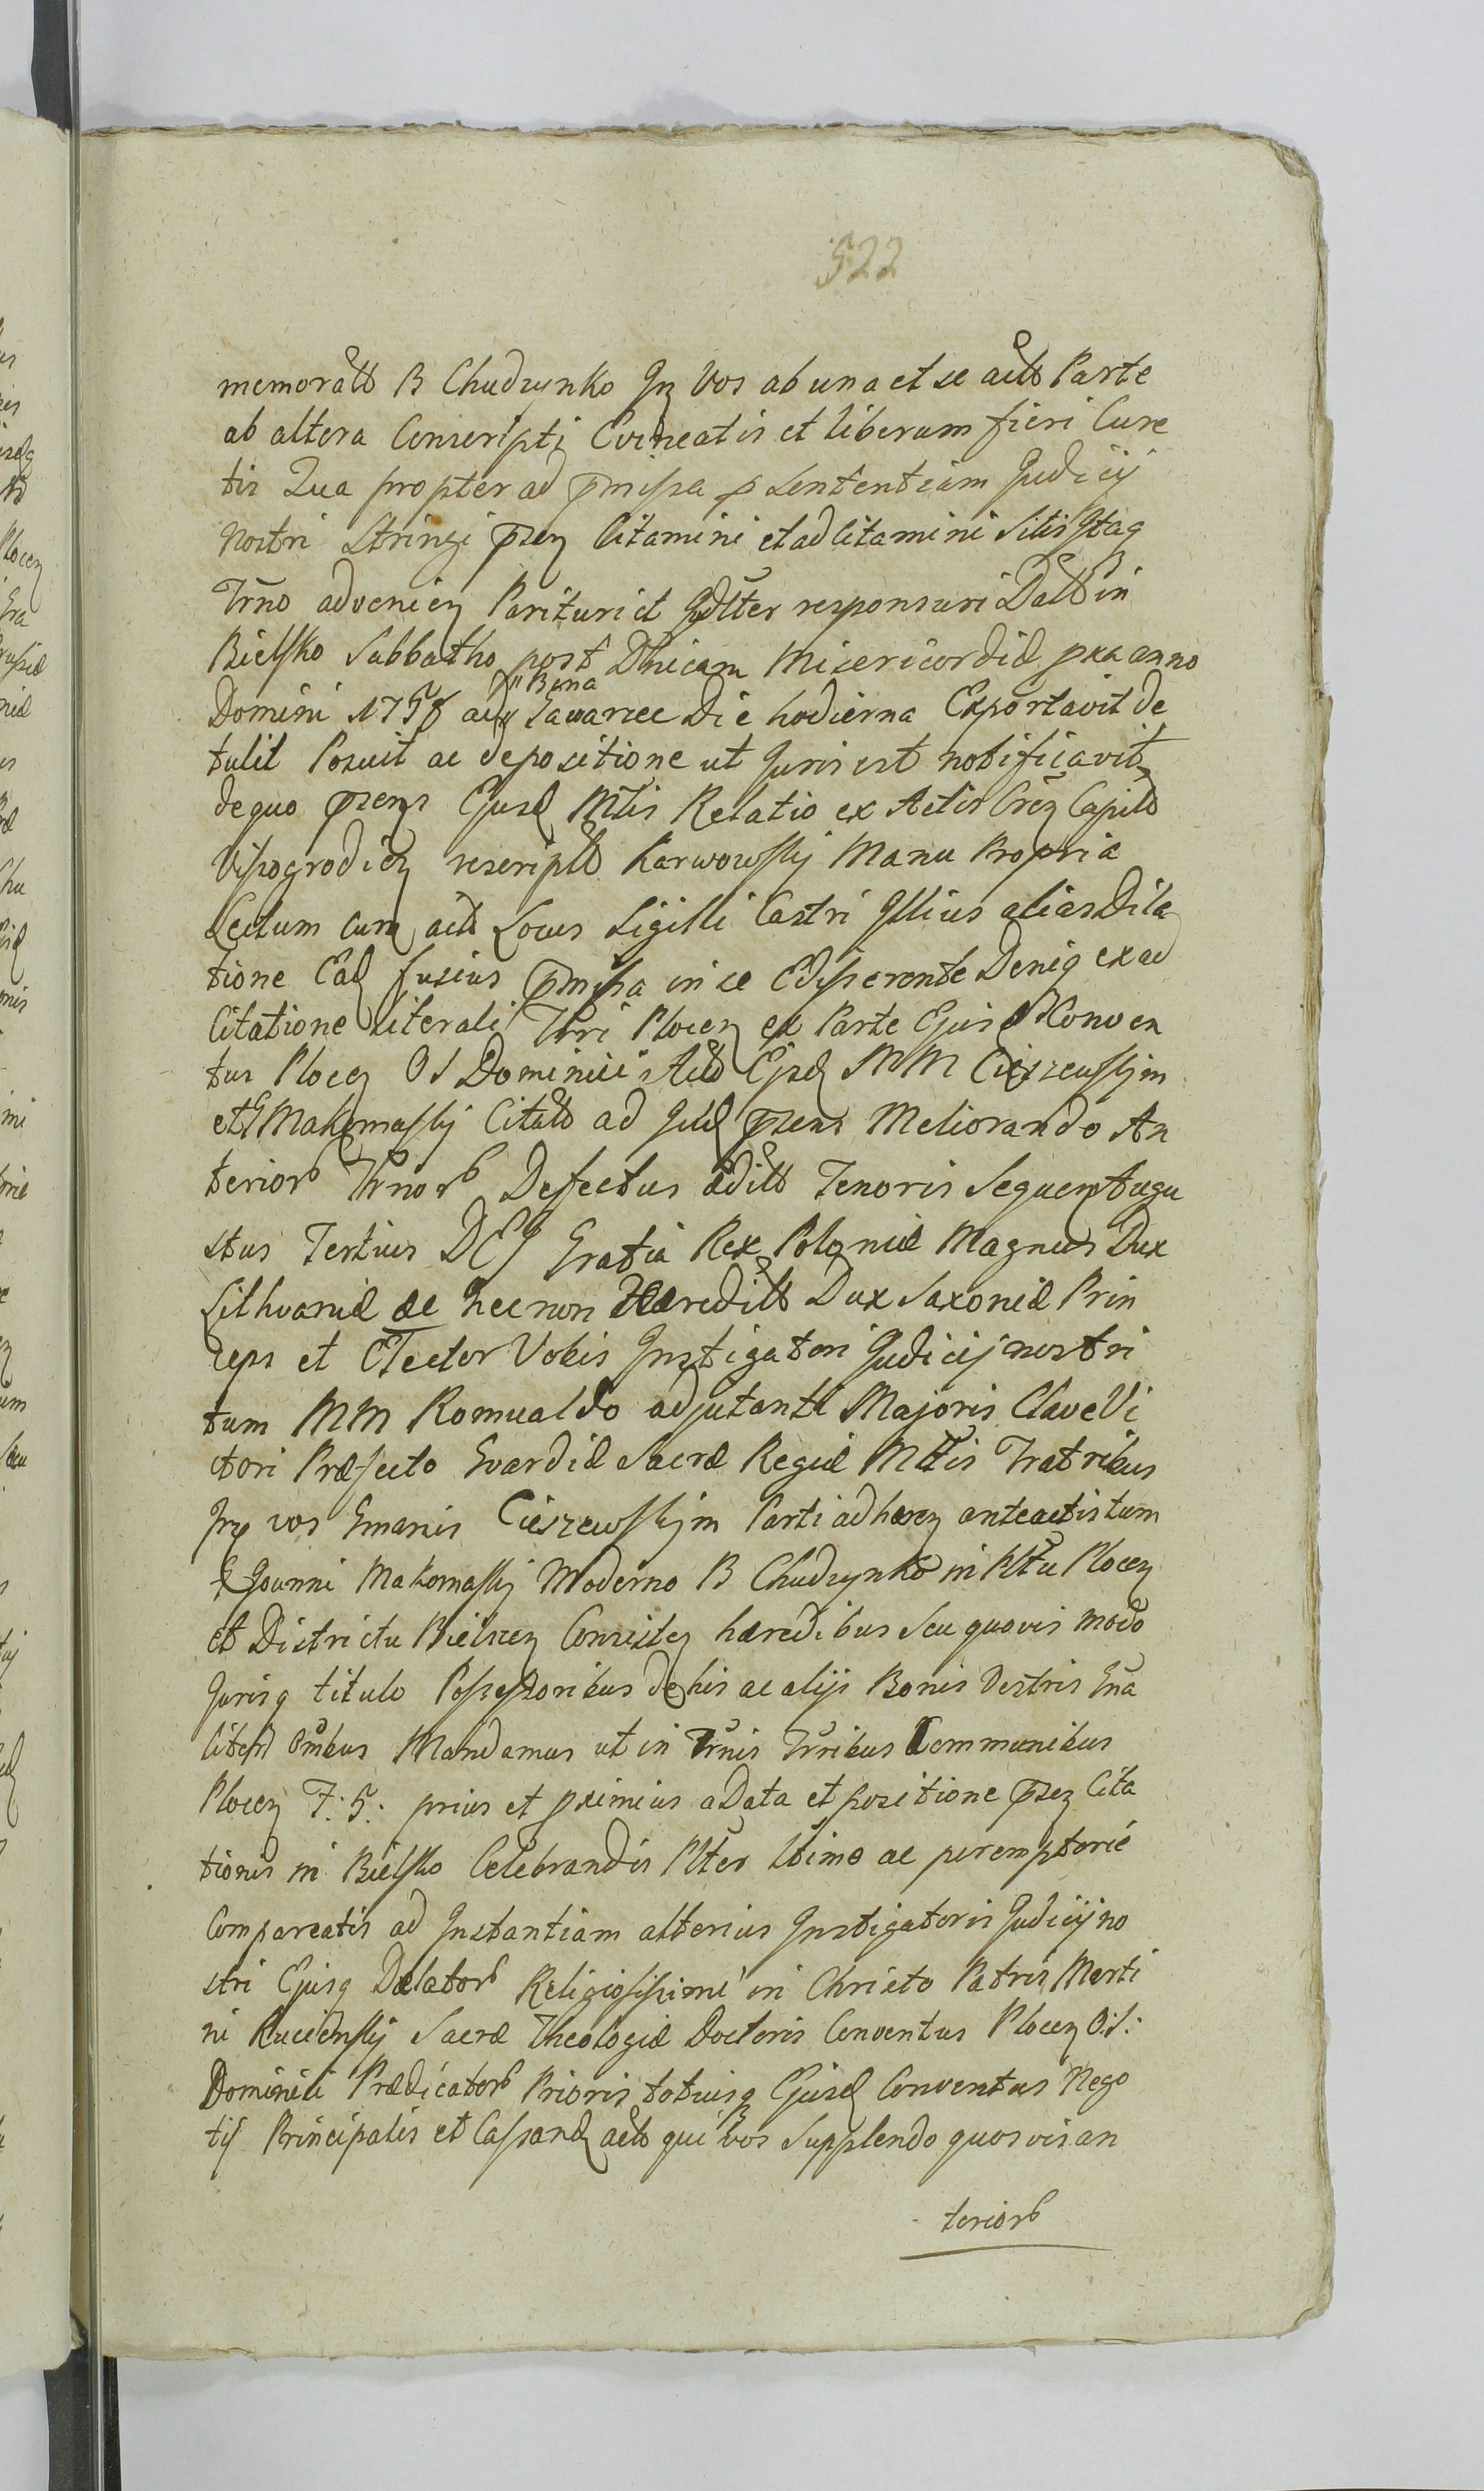 522
memoratt B Chudzynko Jnz Vos ab una et se actt Parte
ab altera Conscripti Evincatis et liberam fieri Cure
tis Qua propter ad pmissa p Sententiam Judicij
nostri Stringi pñsen Citamini et adcitamini Sitis Jtaq
Trno advenien Parituri et Judlter responsuri Datt in
Bielsko Sabbatho post Dnicam Misericordiæ pxa anno
Domini 1758 ad Bona Gawarzec Die hodierna Exportavit de
tulit Posuit ac depositione ut Juris est notificavit
de quo pñsens Ejusd Mtis Relatio ex Actis Cren Capitt
Vissogrodien rescriptt Karwowskj Manu Propria
Lectum cum actt Locus Sigilli Castri Jllius alias Dila
tione Ead fusius pmissa in se Edisserente Deniq ex ad
Citatione Literali Trri Plocen ex Parte Ejusd Conven
tus Plocen OS Dominici Actt Ejsd MM Cieszewskjm
et G Makomaskj Citatt ad Jdd pñsens Meliorando An
teriorb Trnorb Defectus editt Tenoris Sequen Augu
stus Tertius DEJ Gratia Rex Poloniæ Magnus Dux
Lithvaniæ &c necnon Hæreditt Dux Saxoniæ Prin
ceps et Elector Vobis Jnstigatori Judicij nostri
tum MM Romualdo adjutanti Majoris Clave Vi
ctori Præfecto Gvardiæ Sacræ Regiæ Mttis Fratribus
Jnz vos Gmanis Cieszewskjm Parti adhæren anteactis tum
G Joanni Makomaskj Moderno B Chudzynko in Pltu Plocen
et Districtu Bielscen Consisten hæredibus Seu quovis modo
Jurisq titulo Possessoribus de his ac alijs Bonis Vestris Gna
literq Ombus Mandamus ut in Trnis Trribus Communibus
Plocen F: 5: prius et pximius a Data et positione pñsen Cita
tionis in Bielsko Celebrandis Plter Ltime ac peremptorie
Compareatis ad Jnstantiam alterius Jnstigatoris Judicij no
stri Ejusq Delatorb Religiosissimi in Christo Patris Marti
ni Sacræ Theologiæ Doctoris Conventus Plocen O: S:
Dominici Prædicatorb Prioris totiusq Ejusd Conventus Nego
tij Principalis et Cassand actt qui vos Supplendo quosvis an
teriorb